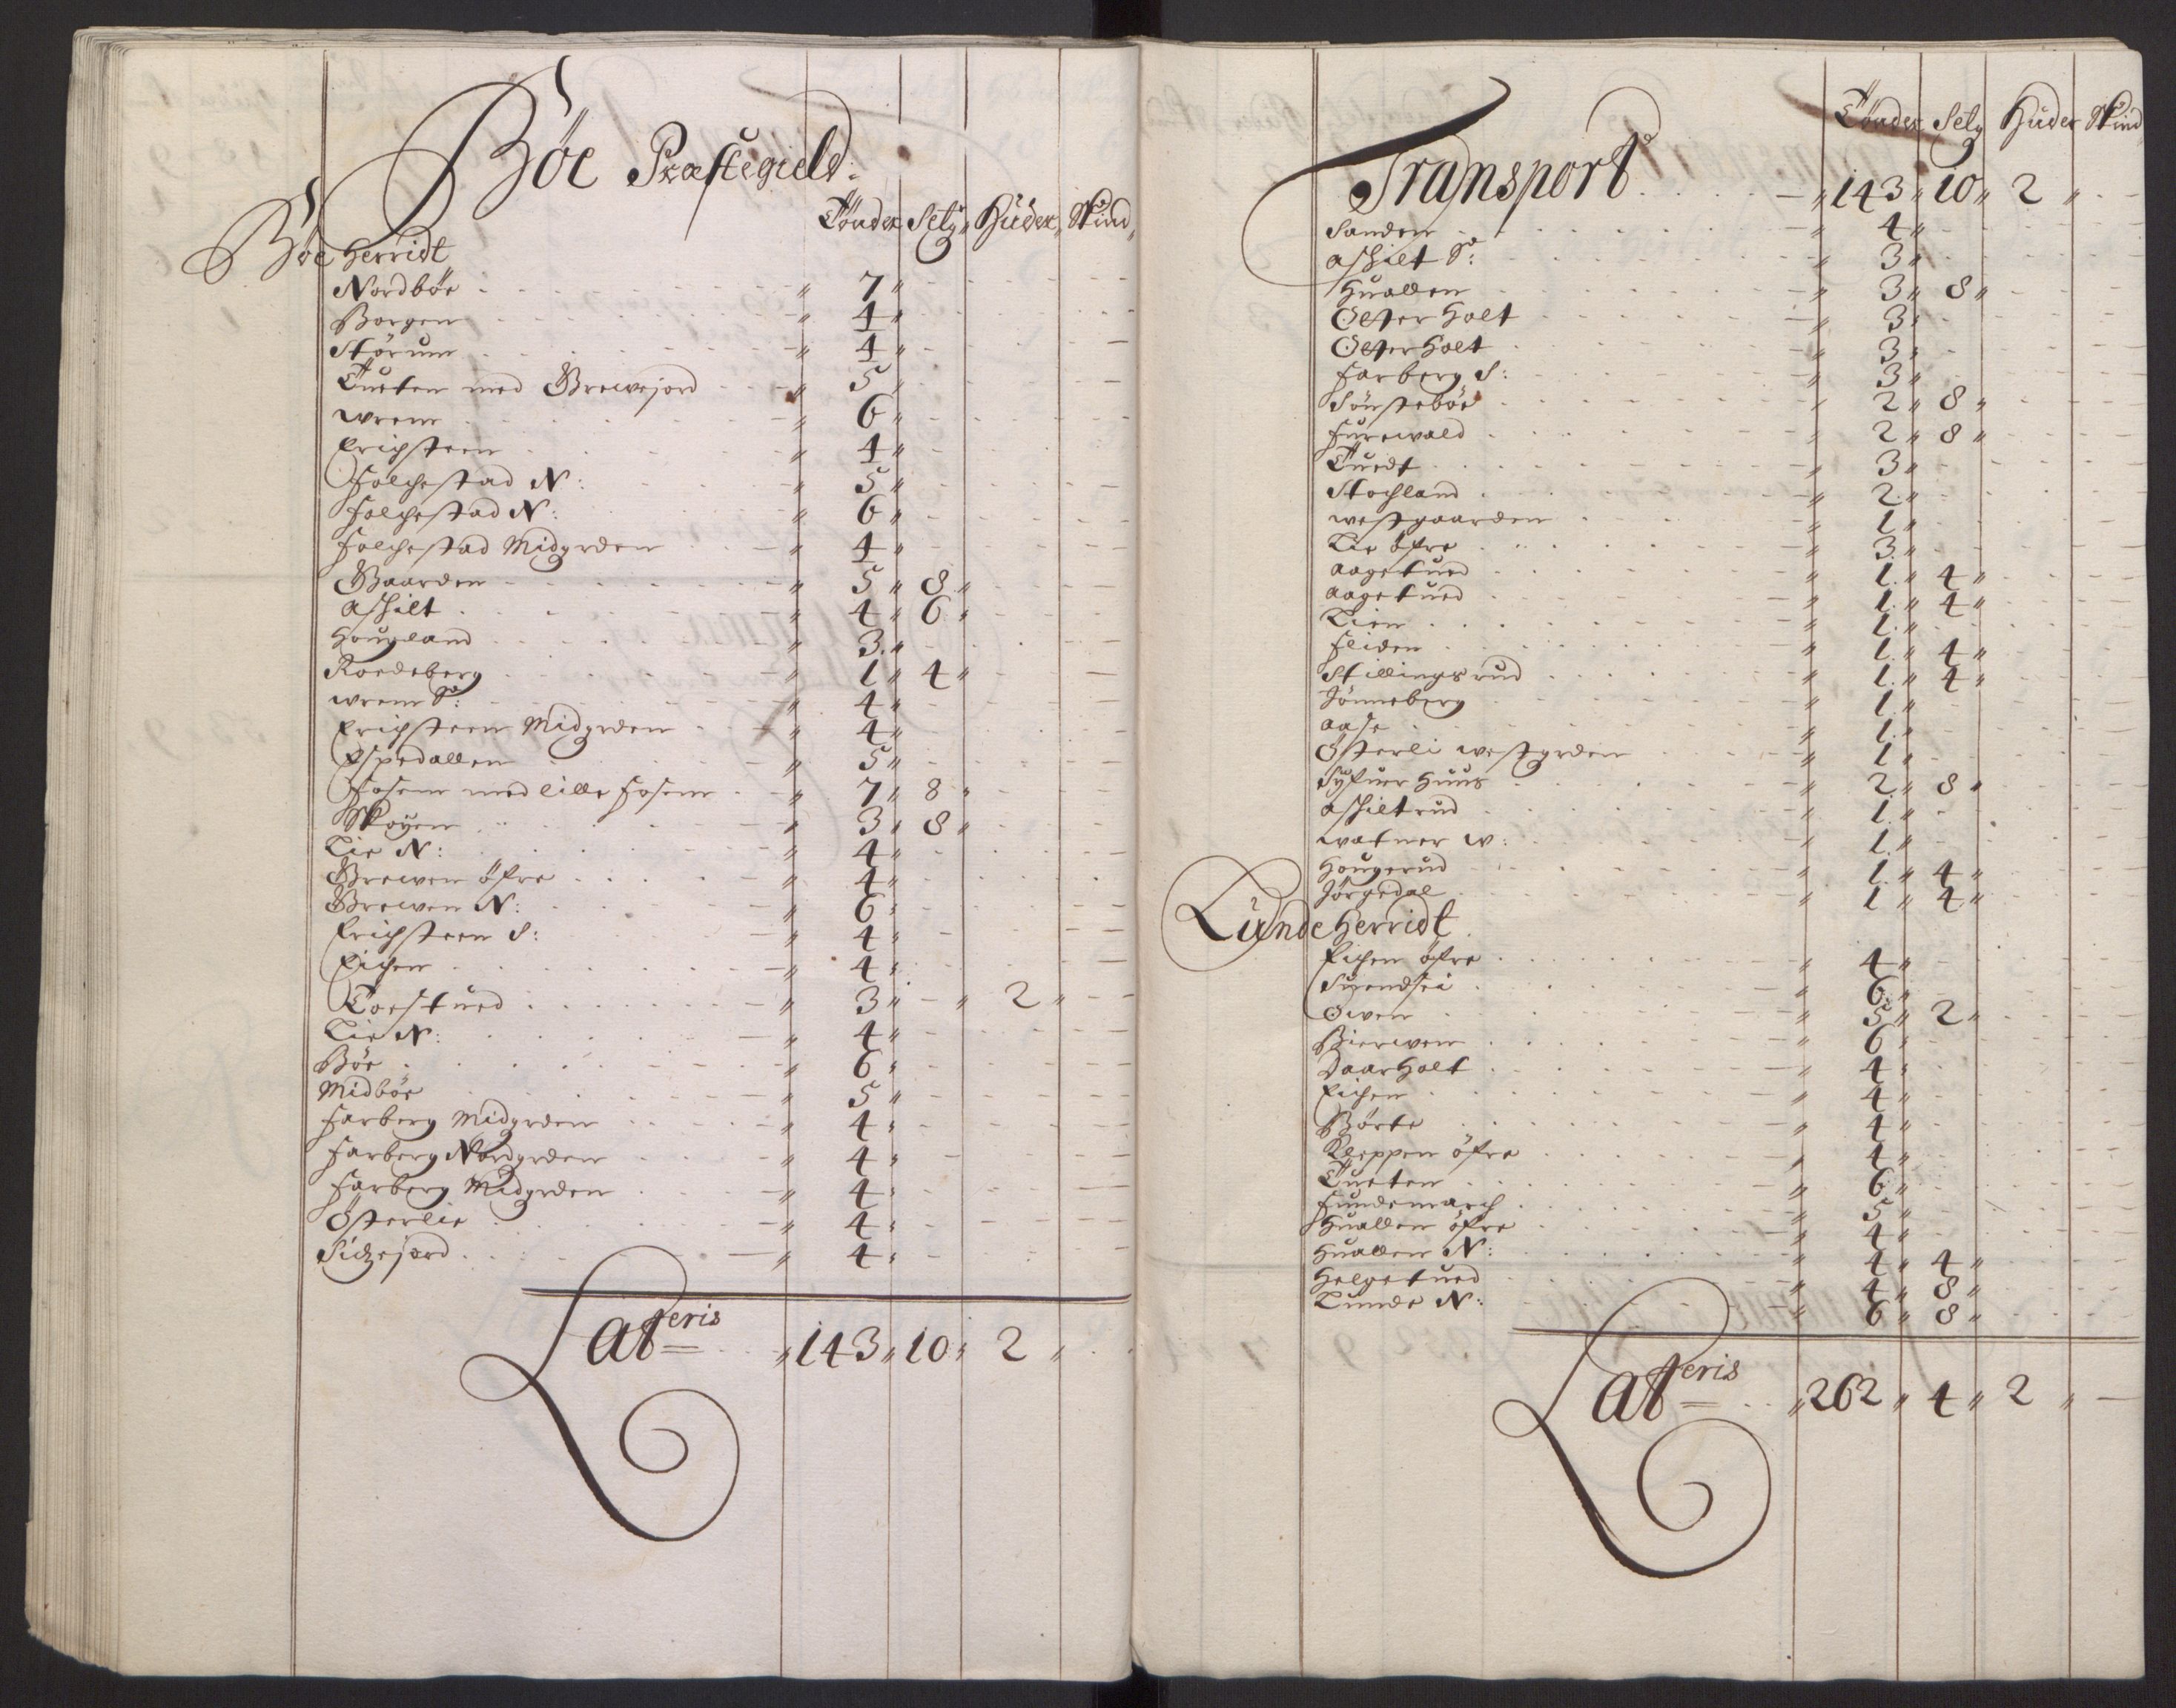 Böe Præstegield.
Tönder Setg Huder Skind
Böe Herridt
Nordbøe 7
Borgen 4
Størum 4
Tueten med Brewejord 5
Wrem 6
Erichsteen 4
Folchestad N: 5
Folchestad N: 6
Folchestad Midgrden 4
Gaarden 5 8
Askilt 4 6
Hougland 3
Roedeberg 1 4
Wrem S: 4
Erichsteen Midgrden 4
Espedallen 5
Fosem med lille Fosem 7 8
Skoyen 3 8
Lie N: 4
Grewen öfre 4
Grewen N: 6
Erichsteen S: 4
Eichen 4
Torstued 3 - 2
Lie N: 4
Böe 6
Midböe 5
Farberg Midgrden 4
Farberg Nordgrden 4
Farberg Midgrden 4
Österlie 4
Sidzejord 4
Lateris 143 10 2
Tönder Setg Huder Skind
Transport 143 10 2
Sanden 4
Askilt S: 3
Huallen 3 8
Olter Holt 3
Olter Holt 3
Farberg S: 3
Sönsteböe 2 8
Furewald 2 8
Tuedt 3
Stochland 2
Westgaarden 1
Lie öfre 3
Aagetued 1 4
Aagetued 1 4
Lien 1
Fliden 1 4
Stillingsrud 1 4
Jönneberg 1
Aase 1
Österli Westgrden 1
Syfuer Huus 2 8
Askiltrud 1
Watner W: 1
Hougerud 1 4
Jörgedal 1 4
Lunde Herridt
Eichen öfre 4
Suendsei 6
Owen 5 2
Bierwen 6
Daarholt 4
Eichen 4
Börte 4
Kleppen öfre 4
Tueten 6
Fundemarch 5
Huallen öfre 4
Huallen N: 4 4
Helgetued 4 8
Lunde N: 6 8
Lateris 262 4 2